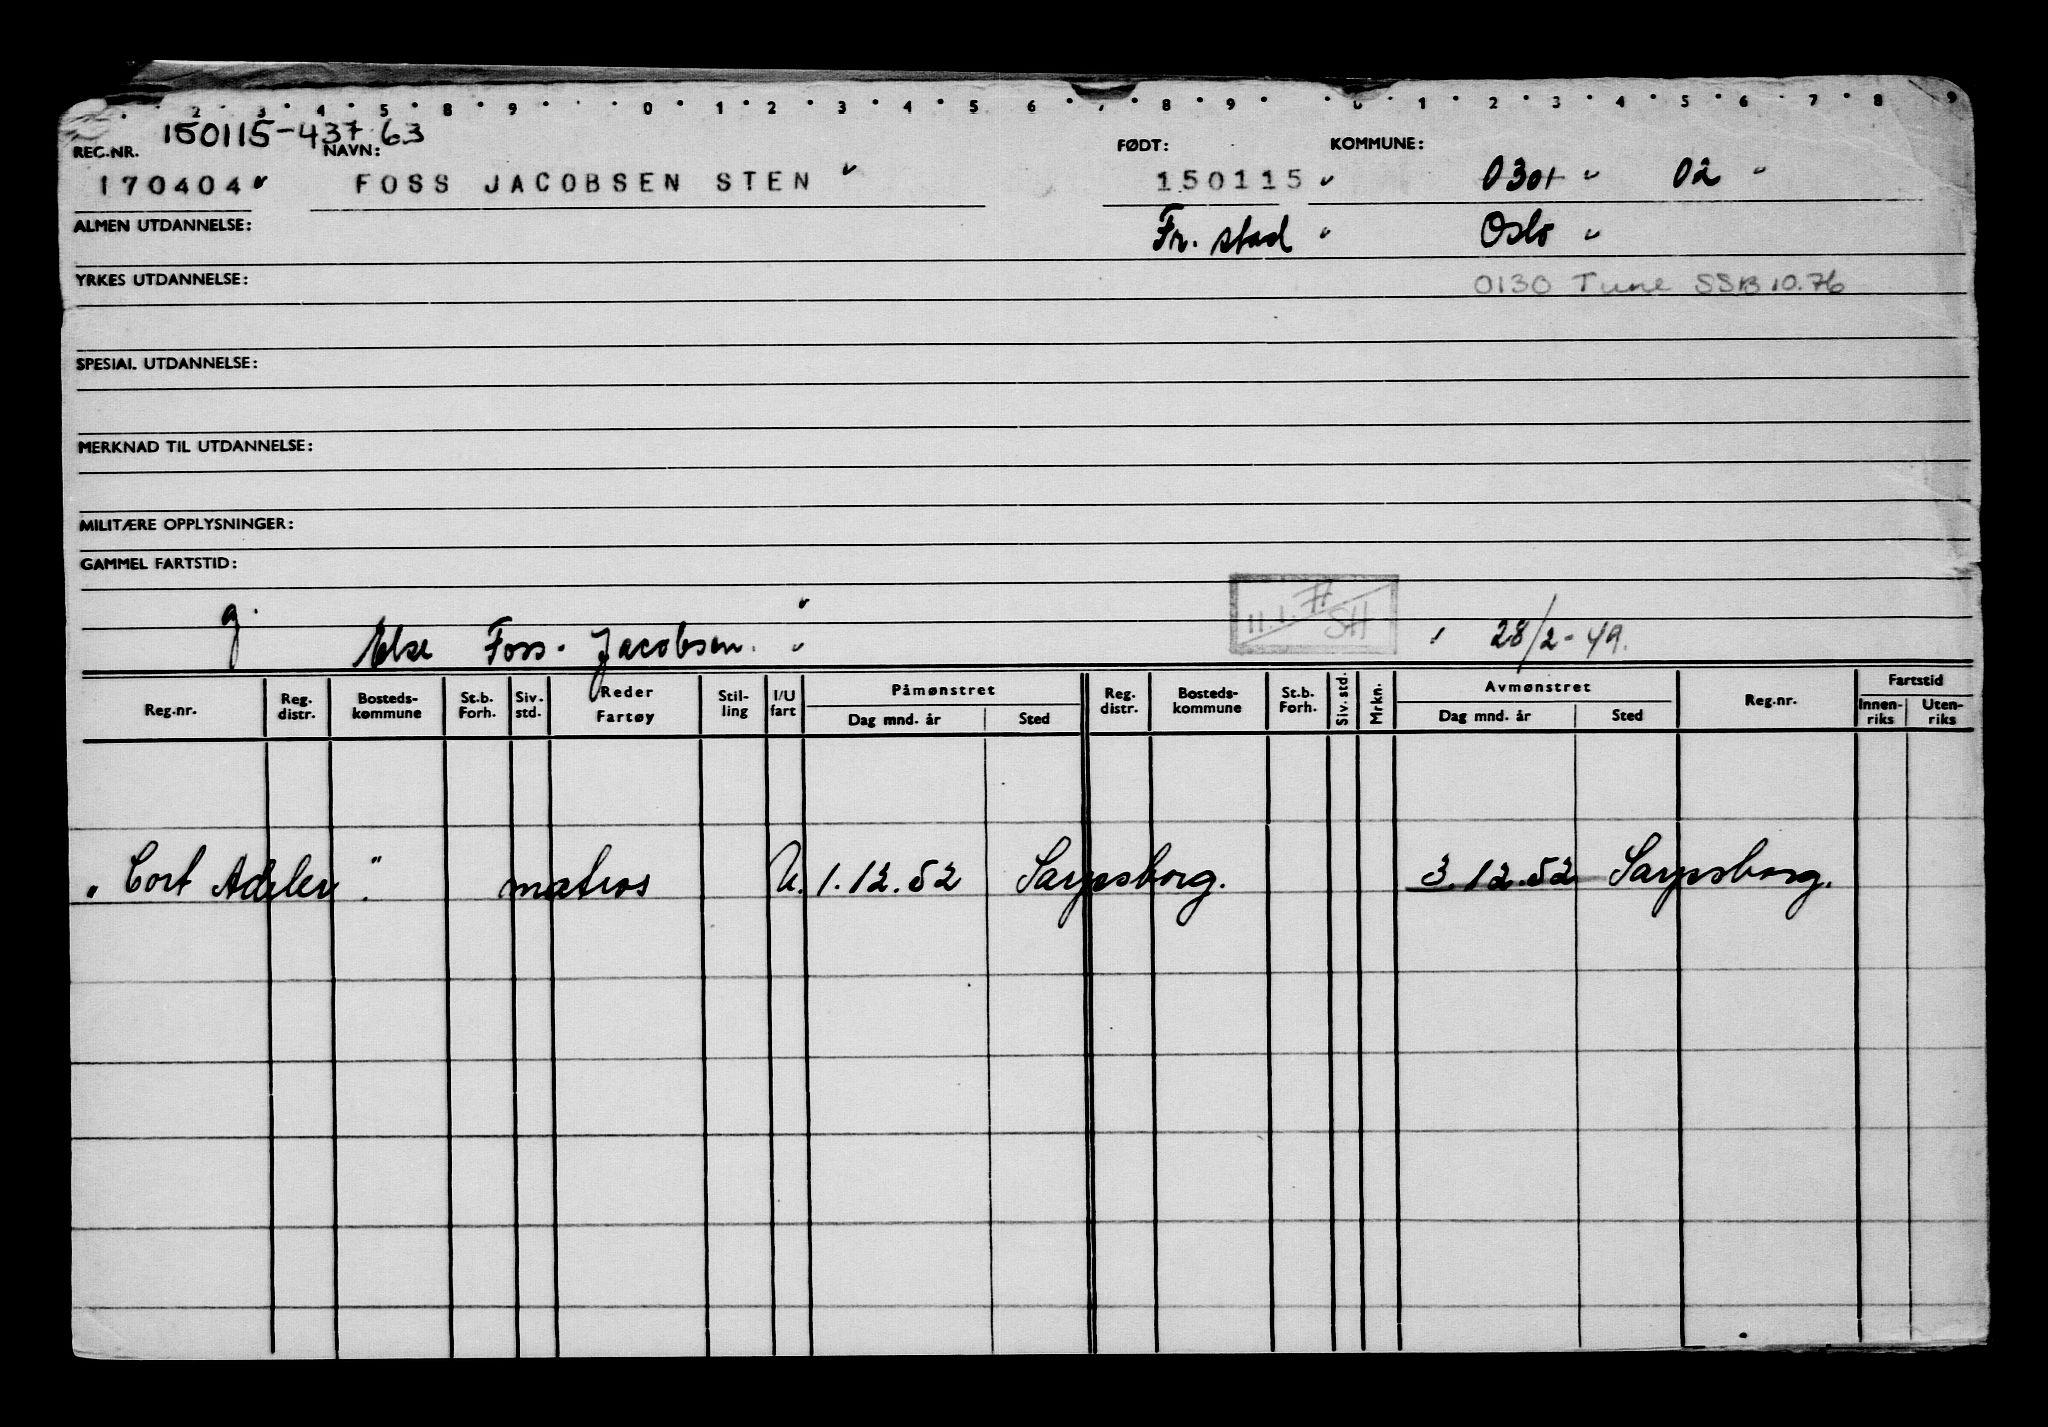 2 3 4 5 8 9 0 1 2 3 4 5 6 7 8 9 0 1 2 3 4 5 6 7 8 9
150115-437 63
REG.NR. NAVN: FØDT: KOMMUNE:
170404 FOSS JACOBSEN STEN 150115 0301 02
ALMEN UTDANNELSE: Fr. stad Oslo
YRKES UTDANNELSE: 0130 Tune SSB 10.76
SPESIAL UTDANNELSE:
MERKNAD TIL UTDANNELSE:
MILITÆRE OPPLYSNINGER:
GAMMEL FARTSTID:
g. 11.1. SH
Else Foss-Jacobsen. 28/2-49.
Reg.nr. Reg. distr. Bosteds-kommune St.b. Forh. Siv. std. Reder Fartøy Stil-ling I/U fart Påmønstret Dag mnd. år Sted Reg. distr. Bosteds-kommune St.b. Forh. Siv. std. Mrkn. Avmønstret Dag mnd. år Sted Reg.nr. Fartstid Innen-riks Uten-riks
"Cort Adeler" matros U. 1.12.52 Sarpsborg. 3.12.52 Sarpsborg.